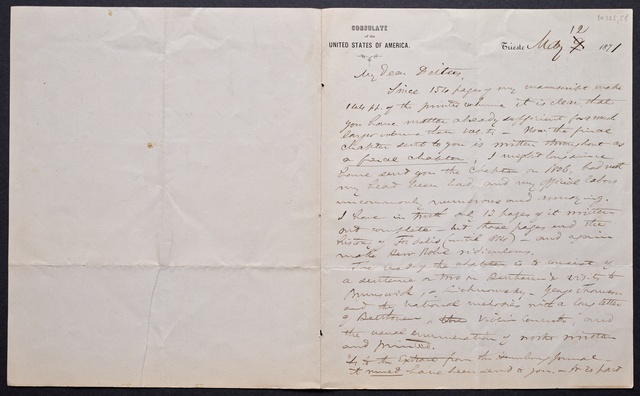 CONSULATE
of the
UNITED STATES OF AMERICA.
Trieste May 12 1871
My dear Deiters,
Since 154 pages of my manuscript make
144 pp. of the printed volume it is clear that
you have matter already sufficient for a much
larger volume than Vol. I. – Now the final
chapter sent to you is written throughout as
a final chapter, I might long since
have sent you the Chapter on 1806, had not
my head been bad, and my official labors
uncommonly numerous and annoying.
I have in truth only 13 pages of it written
out complete – but those pages end the
history of Fidelio (until 1814) – and again
make ridiculous.
The rest of the chapter is to consist of
a sentence or two on Beethoven's visit to
Lichnowsky, George Thomson
and the national melodies with a long letter
of Beethoven, the Violin Concerto, and
the usual enumeration of works written
and printed.
the Extract from the Hamburg Journal –
It must have been sent to you. – It is part